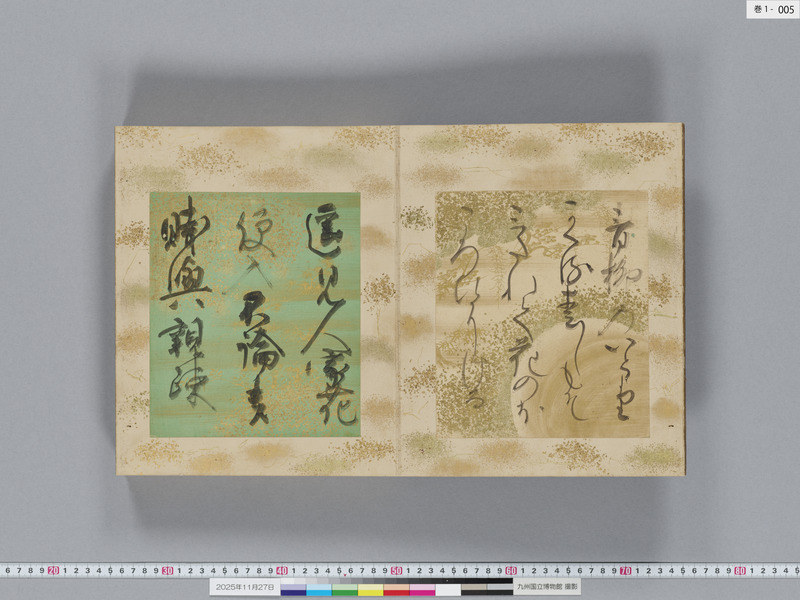 巻1- 005
青柳のいとより
かくる春しもそ
みたれて花のほ
ころひにける
遥見人家花
便入不論貴
賤與親疎
6 7 8 9 20 1 2 3 4 5 6 7 8 9 30 1 2 3 4 5 6 7 8 9 40 1 2 3 4 5 6 7 8 9 50 1 2 3 4 5 6 7 8 9 60 1 2 3 4 5 6 7 8 9 70 1 2 3 4 5 6 7 8 9 80 1 2 3 4 5
2025年11月27日
九州国立博物館 撮影